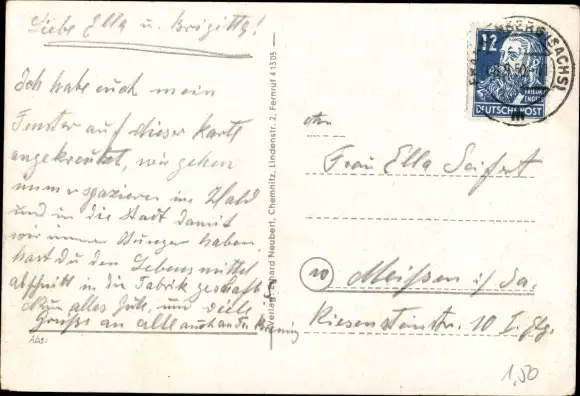 Liebe Ella u. Brigitta!
Ich habe euch mein
Fenster auf dieser Karte
angekreutzt, wir gehen
immer spazieren im Wald
und in die Stadt damit
wir immer Hunger haben.
hast du den Lebensmittel
abschnitt in die Fabrik geschafft
Nun alles Gute, und viele
Grüße an alle auch an die
Abs:
Verlag: Erhard Neubert, Chemnitz, Lindenstr. 2, Fernruf 41305
12
FRIEDRICH
ENGELS
DEUTSCHE POST
(SACHS)
Frau Ella Seifert
10 Meißen i/Sa.
Riesensteinstr. 10 I. Etg.
1,50